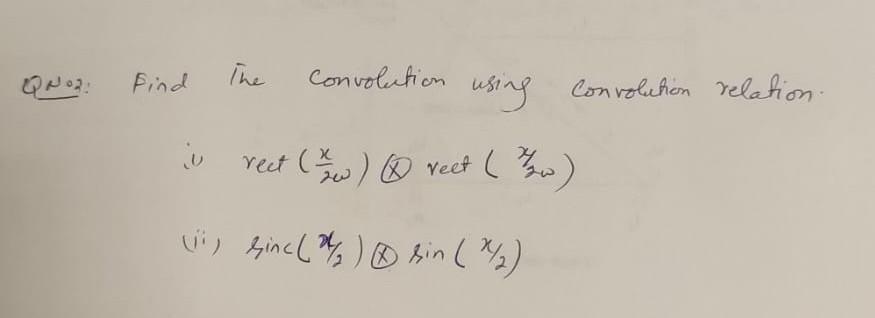 QNo2: Find The Convolution using Convolution relation.
i) rect (x/2w) ⊗ rect (x/2w)
(ii) sinc(x/2) ⊗ sin (x/2)